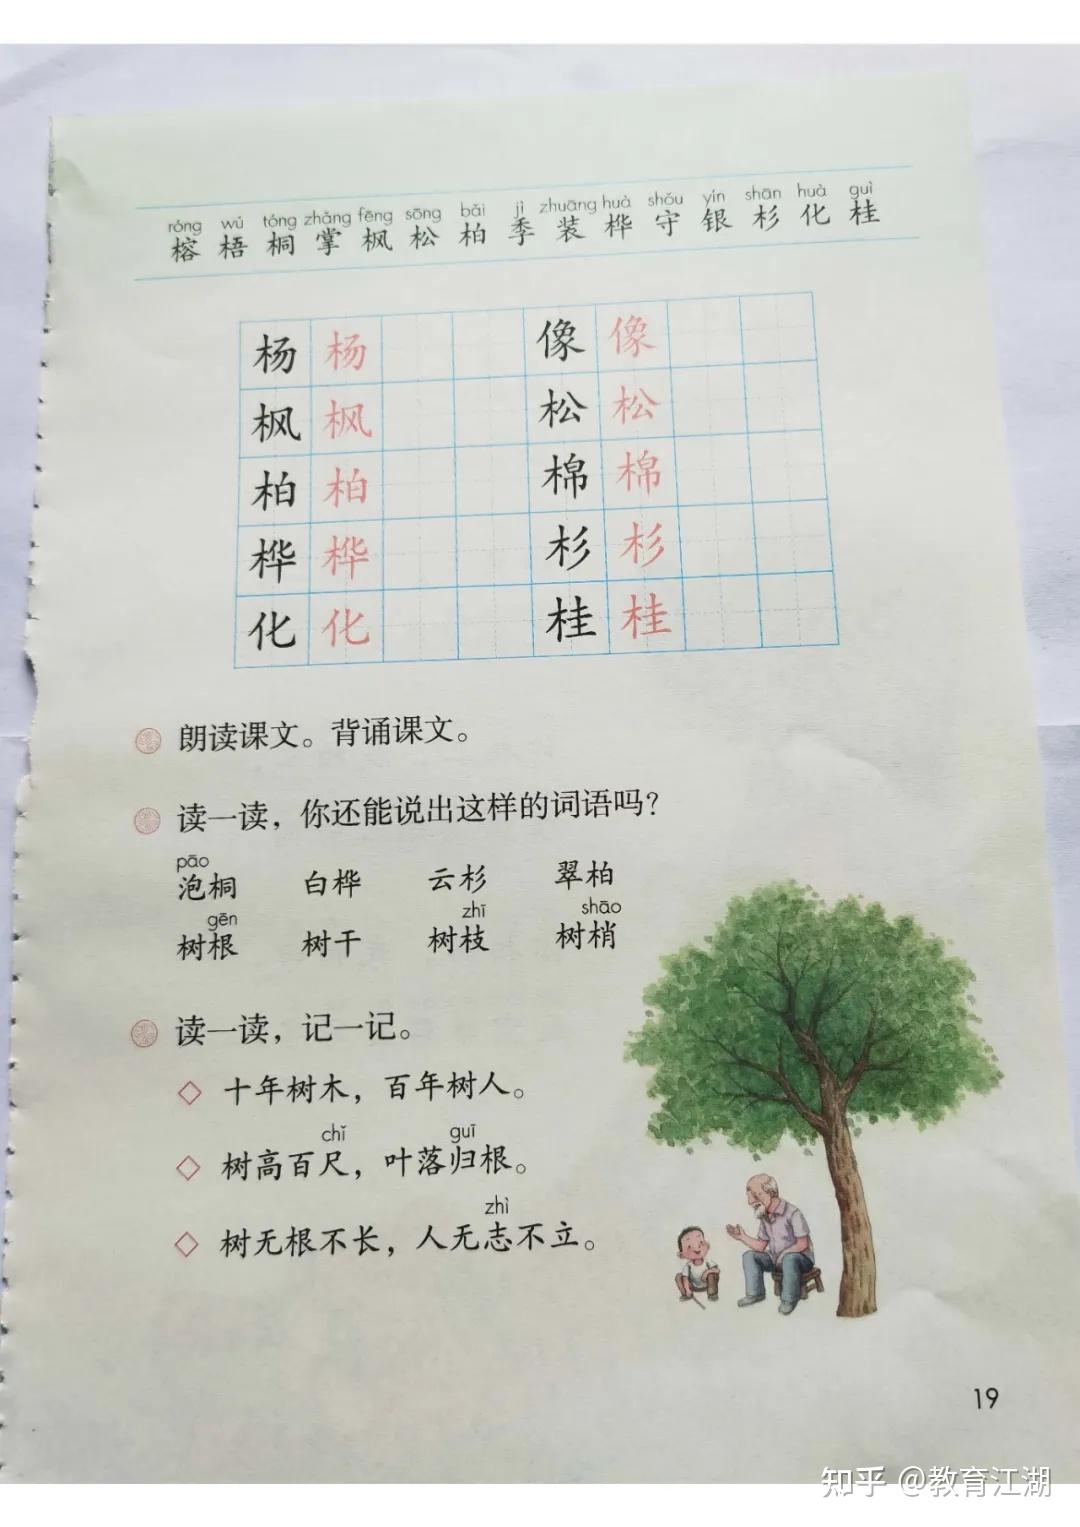 róng wú tóng zhǎng fēng sōng bǎi jì zhuāng huà shǒu yín shān huà guì
榕 梧 桐 掌 枫 松 柏 季 装 桦 守 银 杉 化 桂
杨 杨 像 像
枫 枫 松 松
柏 柏 棉 棉
桦 桦 杉 杉
化 化 桂 桂
朗读课文。背诵课文。
读一读，你还能说出这样的词语吗？
pāo
泡桐 白桦 云杉 翠柏
gēn zhī shāo
树根 树干 树枝 树梢
读一读，记一记。
◇ 十年树木，百年树人。
chǐ guī
◇ 树高百尺，叶落归根。
zhì
◇ 树无根不长，人无志不立。
19
知乎 @教育江湖